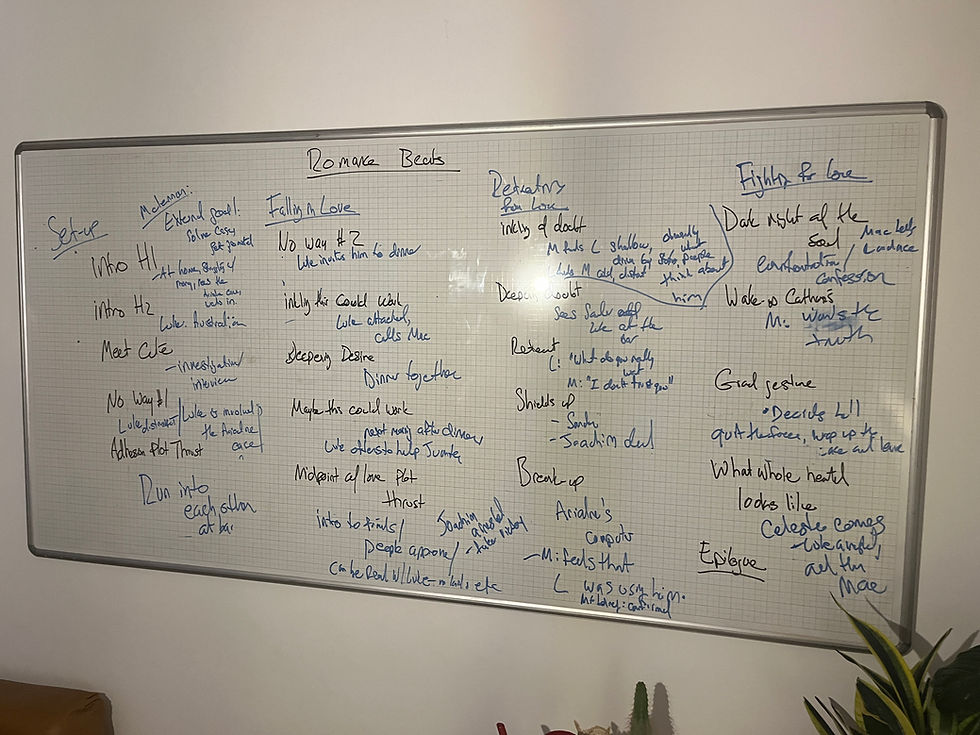 Romance Beats
Set-up
McLennan:
External goal:
Solve case,
Get promoted
Intro H1
- At home, single,
the
Ariadne case,
Intro H2
Luke. Australian
Meet Cute
- investigation
interview
No Way #1
Luke is a suspect / Luke is involved in
the Ariadne
case
Adhesion Plot Thrust
Run into
each other
at bar
Falling in Love
No Way #2
Luke invites him to dinner
inkling this could work
Luke attacked,
calls Mac
Deepening Desire
Dinner together
Maybe this could work
night away after dinner
Luke offers to help
Midpoint of love Plot
thrust
intro to friends /
people approve /
Joachim arrested
- fake victory
Can be Real w/ Luke - etc
Retreating
from Love
inkling of doubt
M finds L shallow, obviously
driven by what people
think about
him
L finds M cold, distant
Deepening doubt
Sees Sander and
Luke at the
bar
Retreat
L: "What do you really
want"
M: "I don't trust you"
Shields up
- Sander
- Joachim dead
Break-up
Ariadne's
computer
- M: feels that
L was using him.
M's belief: confirmed
Fighting for Love
Dark night of the
Soul
confrontation /
confession
Mac tells
Candace
Wake-up Catharsis
M: wants the
truth
Grand gesture
• Decides he'll
quit the force, wrap up the
case and leave
What whole hearted
looks like
Celeste comes
- Luke
and then
Mac
Epilogue